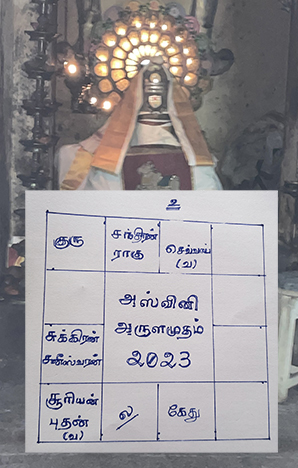 உ
குரு
சந்திரன்
ராகு
செவ்வாய்
(வ)
அஸ்வினி
அருளமுதம்
2023
சுக்கிரன்
சனீஸ்வரன்
சூரியன்
புதன்
(வ)
ல
கேது